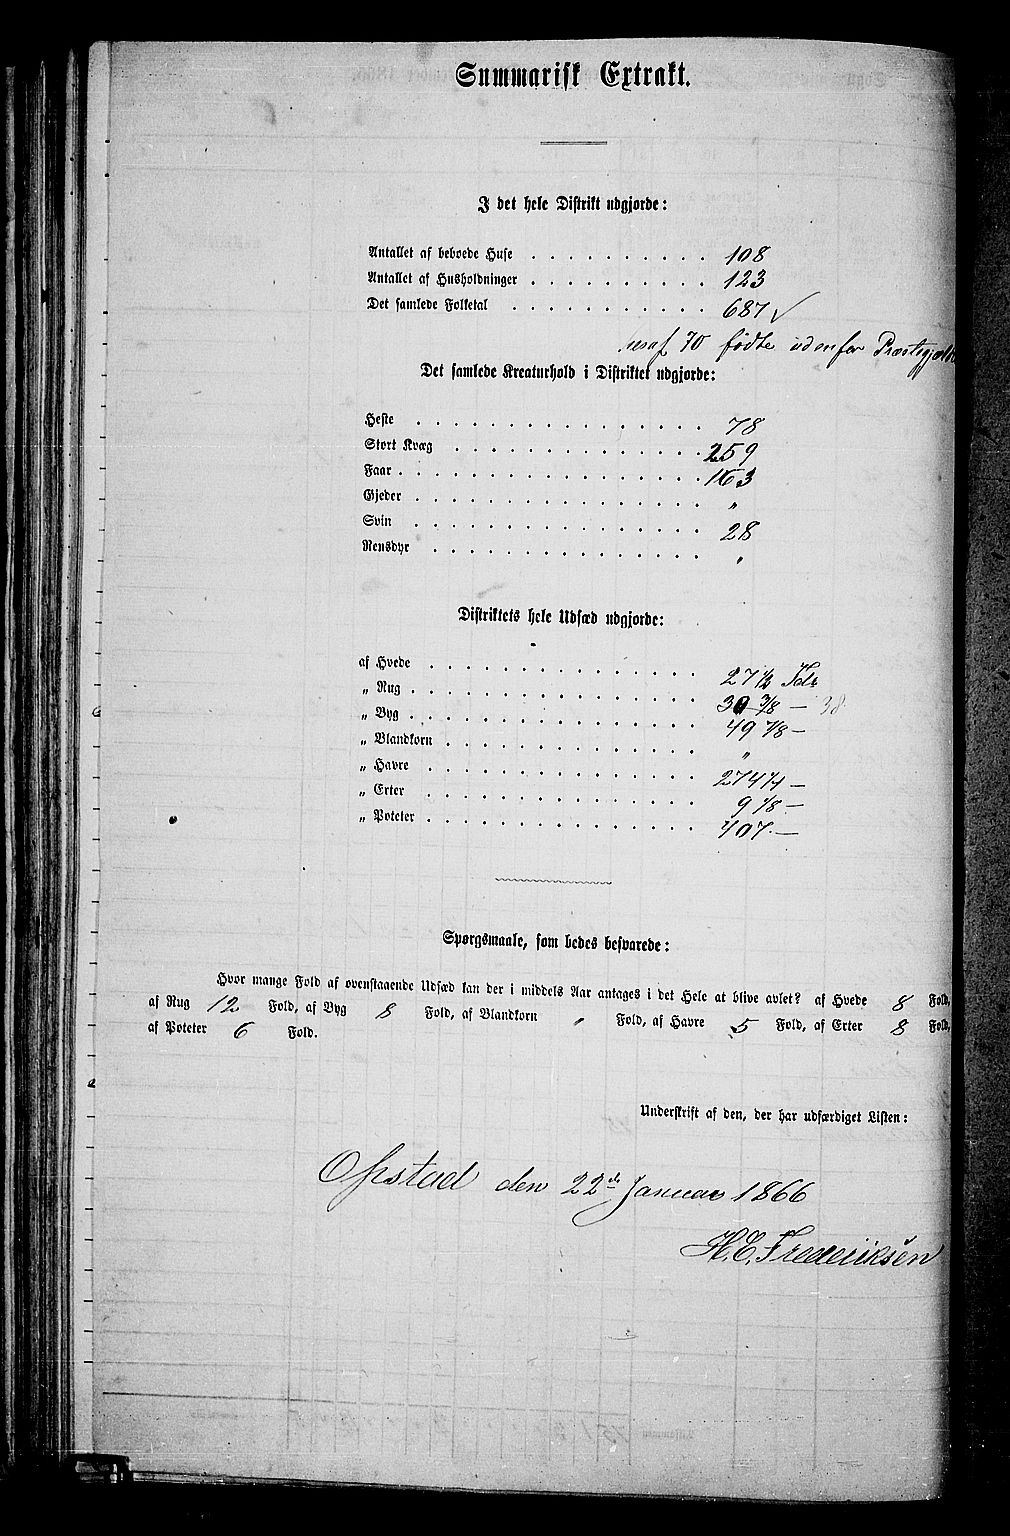 Summarisk Extrakt.
I det hele Distrikt udgjorde:
Antallet af beboede Huse . . . . . . . . . . 108
Antallet af Husholdninger . . . . . . . . . . 123
Det samlede Folketal . . . . . . . . . . . 687 ✓
70 fødte udenfor Præstegjeldet
Det samlede Kreaturhold i Distriktet udgjorde:
Heste . . . . . . . . . . . . . . . . 78
Stort Kvæg . . . . . . . . . . . . . . 259
Faar . . . . . . . . . . . . . . . . . 163
Gjeder . . . . . . . . . . . . . . . . "
Svin . . . . . . . . . . . . . . . . 28
Rensdyr . . . . . . . . . . . . . . . "
Distriktets hele Udsæd udgjorde:
af Hvede . . . . . . . . . . . . . . . 27 1/2 Tdr
„ Rug . . . . . . . . . . . . . . . . 30 3/8 — 38
„ Byg . . . . . . . . . . . . . . . . 49 7/8 —
„ Blandkorn . . . . . . . . . . . . . . "
„ Havre . . . . . . . . . . . . . . . 274 1/4 —
„ Erter . . . . . . . . . . . . . . . 9 1/8 —
„ Poteter . . . . . . . . . . . . . . . 407. —
Spørgsmaale, som bedes besvarede:
Hvor mange Fold af ovenstaaende Udsæd kan der i middels Aar antages i det Hele at blive avlet? af Hvede 8 Fold,
af Rug 12 Fold, af Byg 8 Fold, af Blandkorn " Fold, af Havre 5 Fold, af Erter 8 Fold,
af Poteter 6 Fold.
Underskrift af den, der har udfærdiget Listen:
Opstad den 22de Januar 1866
H. E. Frederiksen